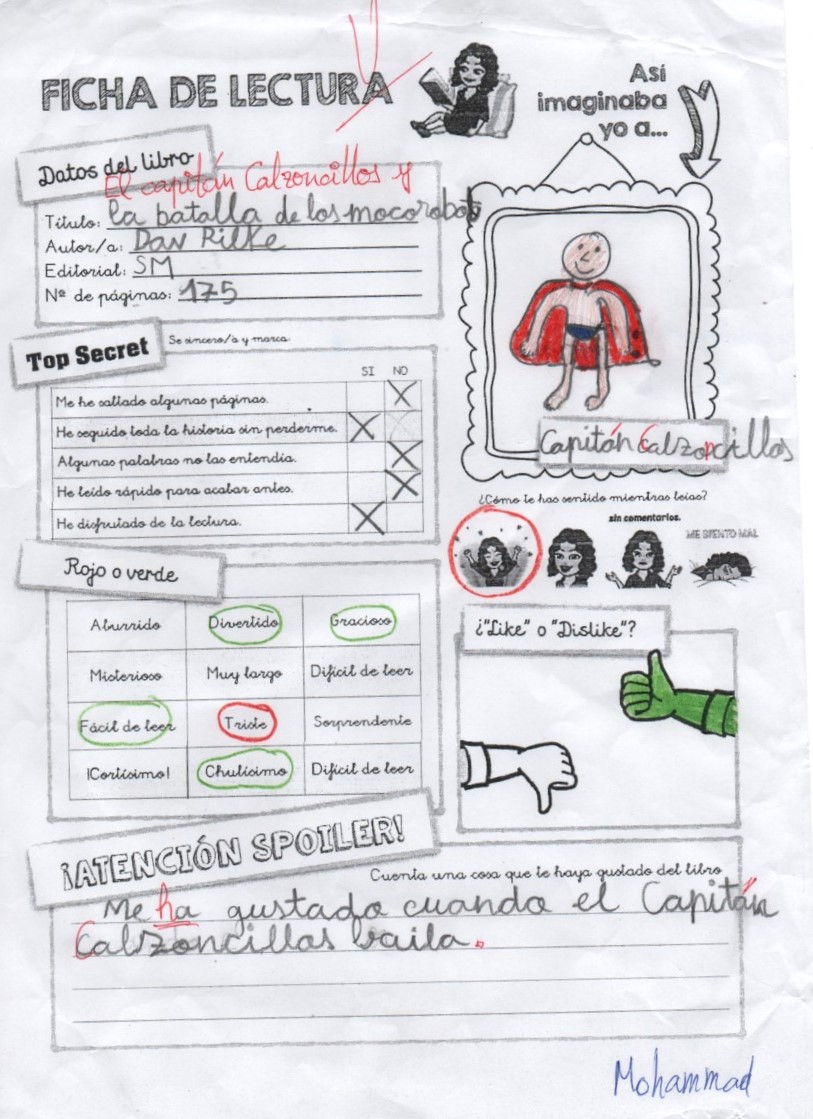 FICHA DE LECTURA
Así
imaginaba
yo a...
Datos del libro
El capitán Calzoncillos y
Título: la batalla de los mocorobots
Autor/a: Dav Rilke
Editorial: SM
Nº de páginas: 175
Top Secret
Se sincero/a y marca.
SI NO
Me he saltado algunas páginas. X
He seguido toda la historia sin perderme. X
Algunas palabras no las entendía. X
He leído rápido para acabar antes. X
He disfrutado de la lectura. X
Capitán Calzoncillos
¿Cómo te has sentido mientras leías?
sin comentarios.
ME SIENTO MAL
Rojo o verde
Aburrido Divertido Gracioso
Misterioso Muy largo Difícil de leer
Fácil de leer Triste Sorprendente
¡Cortísimo! Chulísimo Difícil de leer
¿"Like" o "Dislike"?
¡ATENCIÓN SPOILER!
Cuenta una cosa que te haya gustado del libro
Me ha gustado cuando el Capitán
Calzoncillas baila.
Mohammad